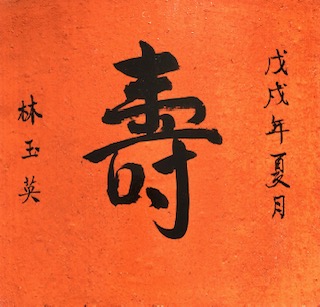 戊戌年夏月
壽
林玉英